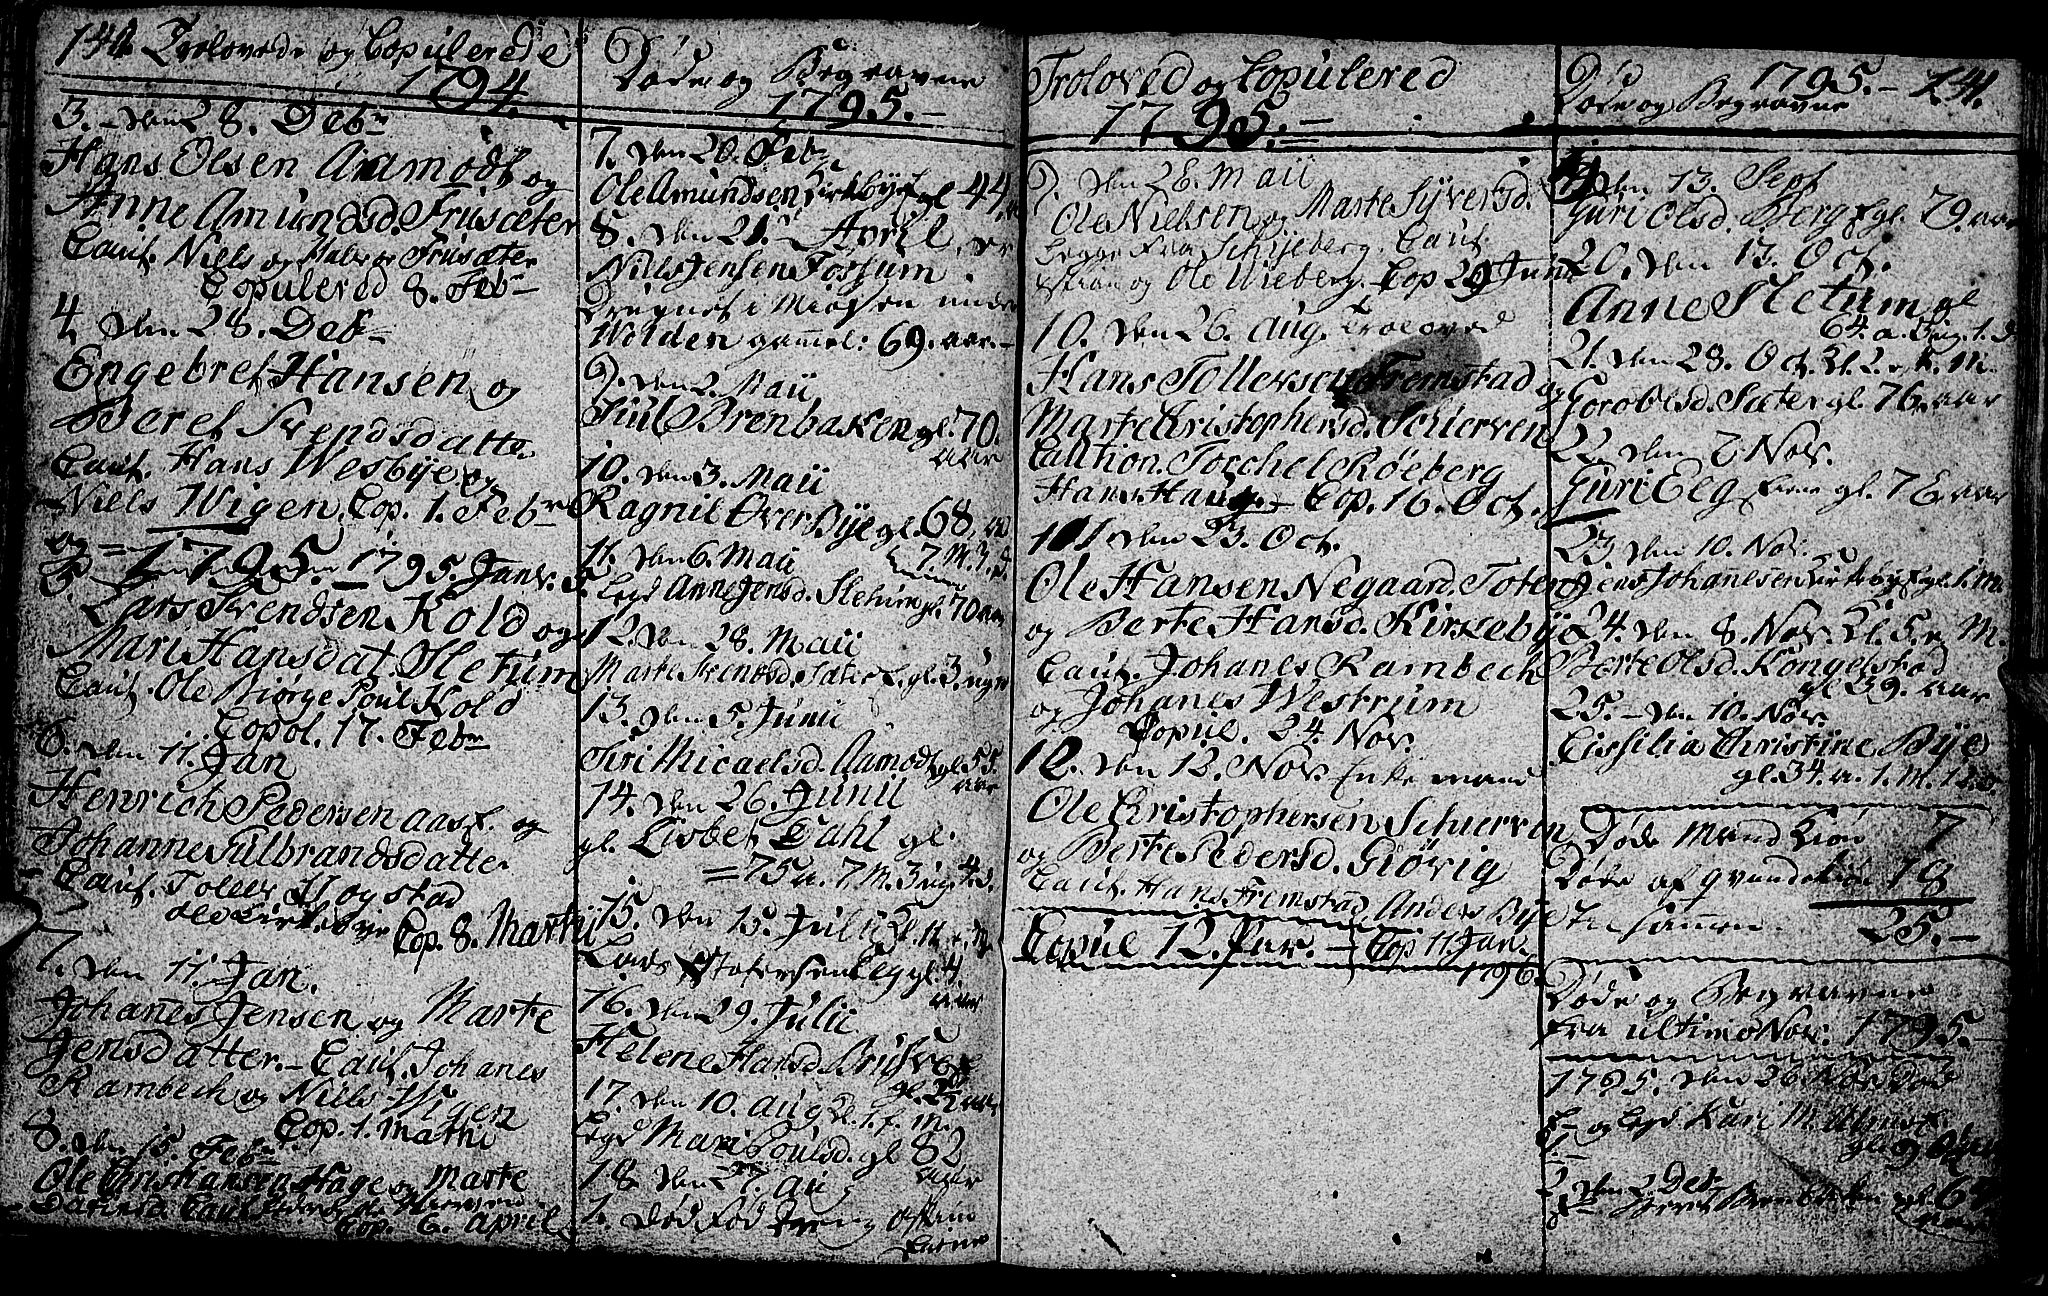 140. Trolovede og Copulerede
1794.
3. den 28. Debr
Hans Olsen Aamodt og
Anne Amundsd. Frusæter
Caut. Niels og Halvor Frusæter
Copulered 8. Febr
4 den 28. Debr
Engebret Hansen og
Beret Svendsdatter
Caut. Hans Wesbye og
Niels Wigen Cop. 1. Febr
1795. 1795. Janv.
5
Lars Svendsen Kold og
Mari Hansdat. Sletum
Caut. Ole Biørge Poul Kold
Copol. 17. Febr
6. den 11. Jan
Henrich Pedersen aas og
Johanne Gulbrandsdatter
Caut. Tollev Hogstad
Ole Kirkebye Cop. 8. Martii
7. den 11. Jan.
Johanes Jensen og Marte
Jensdatter. Caut. Johanes
Rambech og Niels Wigen
Cop. 1. Martii
8. den 15. Febr
Ole Christiansen Hage og Marte
Cop. 6. april
Døde og Begravne
1795.
7. den 20. Febr
Ole Amundsen Kirkbye gl 44
8. den 21. April
Niels Jensen Fossum
Druknet i Miøsen under
Wolden gammel: 69. aar
9. den 2. Maii
Juul Brenbaken gl. 70.
aar
10. den 3. Maii
Ragnil Øverbye gl. 68
11. den 6. Maii 7. M. 3. d.
Legd Anne Jensd. Sletum gl. 70 aar
12. den 28. Maii
Marte Svensd. Sæter gl. 3. uger
13. den 5. Junii
Siri Micaelsd. Aamodt gl. 55.
aar
14. den 26. Junii
gl. Lisbet Dahl gl.
= 75 a. 7. M. 3 ug 4. d.
15. den 15. Julii
Lars Stofersen Eeg gl. 4.
aar
16. den 19. Julii
Helene Hansd. Brusve
17. den 10. aug
Legd Mari Poulsd. gl 82
aar
18 den
1. død fød
Trolovd og Copulered
1795.
9. den 28. Maii
Ole Nielsen og Marte Syversd.
begge fra Schijeberg. Caut.
og Ole Wieberg. Cop 29 Junii
10. den 26. aug. trolovd
Hans Tollevsen Fremstad og
Marte Christophersd. Schierven
Caution. Torchel Røeberg
Hans Haug. Cop. 16. Oct.
11. den 23. Oct.
Ole Hansen Negaard Toten
og Berte Hansd. Kirkebye
Caut. Johanes Rambech
og Johanes Westrum
Copul. 24. Nov.
12. den 12. Nov. Enkemand
Ole Christophersen Schierven
og Berte Pedersd. Giøvig
Caut. Hans Fremstad Anders Bye
Copul 12. Par. Cop 11 Jan.
1796.
1795. 141.
Døde og Begravne
19 den 13. Sept
Guri Olsd. Berg gl. 79. aar
20. den 13. Oct.
Anne Sletum gl
64. a.
21. den 28. Oct.
Goro Olsd. Sæter gl. 76. aar
22. den 7 Nov.
Guri Eeg gl. 78 aar
23. den 10. Nov.
Jens Johannesen Kirkebye gl. 1. m.
24. den 8. Nov. Kl. 5.
Berte Olsd. Kongelstad
gl 39. aar
25. den 10. Nov.
Cissilia Christine Bye
gl. 34. a. 1. M. 12. d.
Døde Mandkiøn 7
Døde af qvindekiøn 18
Til sammen. 25.
Døde og Begravne
fra ultimo Nov. 1795.
1795. den 26 Nov død
og Legd Kari
2. den 2 Debr